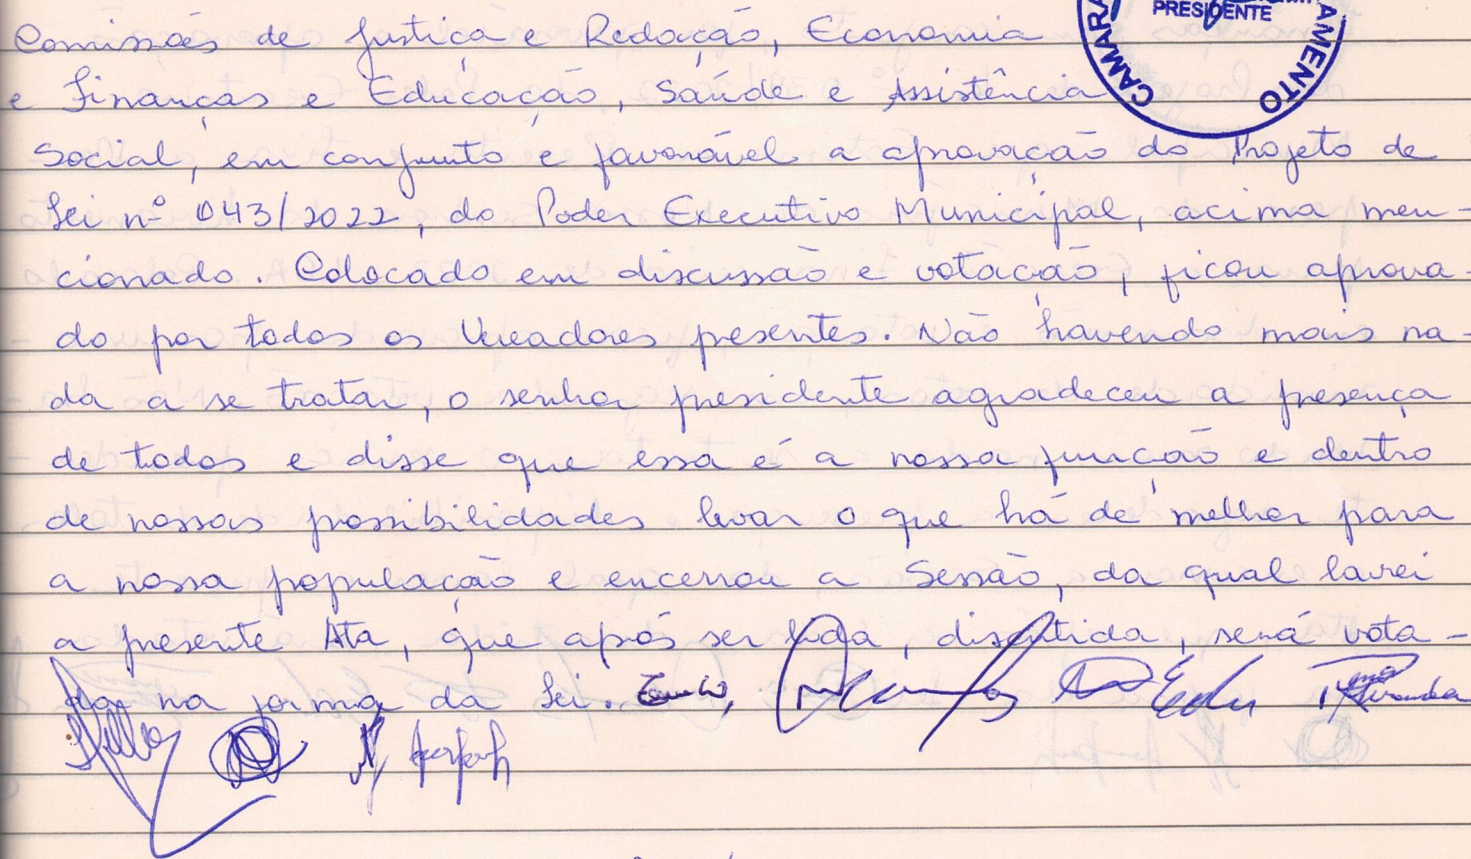 PRESIDENTE
CAMARA
AMENTO
Comissões de Justiça e Redação, Economia
e Finanças e Educação, Saúde e Assistência
Social, em conjunto é favorável a aprovação do Projeto de
Lei nº 043/2022, do Poder Executivo Municipal, acima men-
cionado. Colocado em discussão e votação, ficou aprova-
do por todos os Vereadores presentes. Não havendo mais na-
da a se tratar, o senhor presidente agradeceu a presença
de todos e disse que essa é a nossa função e dentro
de nossas possibilidades levar o que há de melhor para
a nossa população e encerrou a Sessão, da qual lavrei
a presente Ata, que após ser lida, discutida, será vota-
da na forma da Lei.